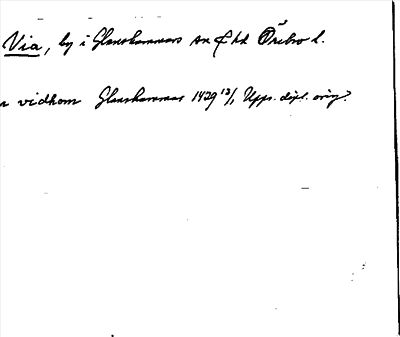 Via, by i Glanshammars sn o hd Örebro l.
vidhom Glanshammar 1429 13/1 Upps. dipl. orig.